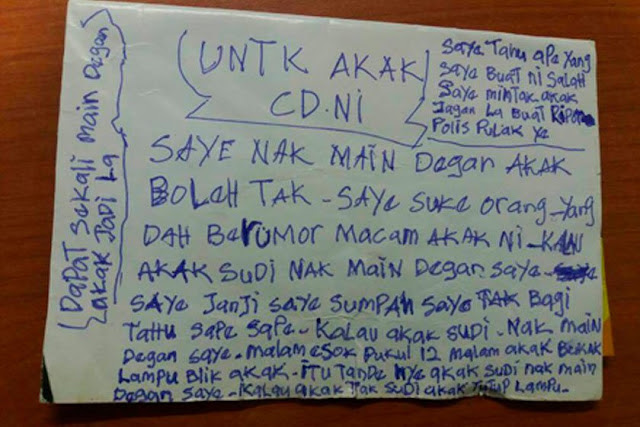 UNTK AKAK
CD.NI
Saye Tahu ape yang
saye Buat ni salah
saye mintak akak
Jagan La Buat Ripot
Polis Pulak ye
SAYE NAK MAIN Degan AKAK
BOLEH TAK - SAYe SUKe orang - yang
DAH BerUMOr MACAM AKAK Ni - KALAU
AKAK SUDI NAK MAIN Degan saye -
SAYe JANJI saye SUMPAH saye TAK BAGI
TAHU SAPE SAPe - KALAU akak SUDI - NAK MAIN
Degan saye - MALAM esok PUKUL 12 malam akak
LAMPU BLIK akak - iTU TANDe NYe akak SUDI nak main
Degan saye - KALAU akak Tak SUDI akak TUTUP LAMPU -
DAPAT sekali main Degan
akak JADi La